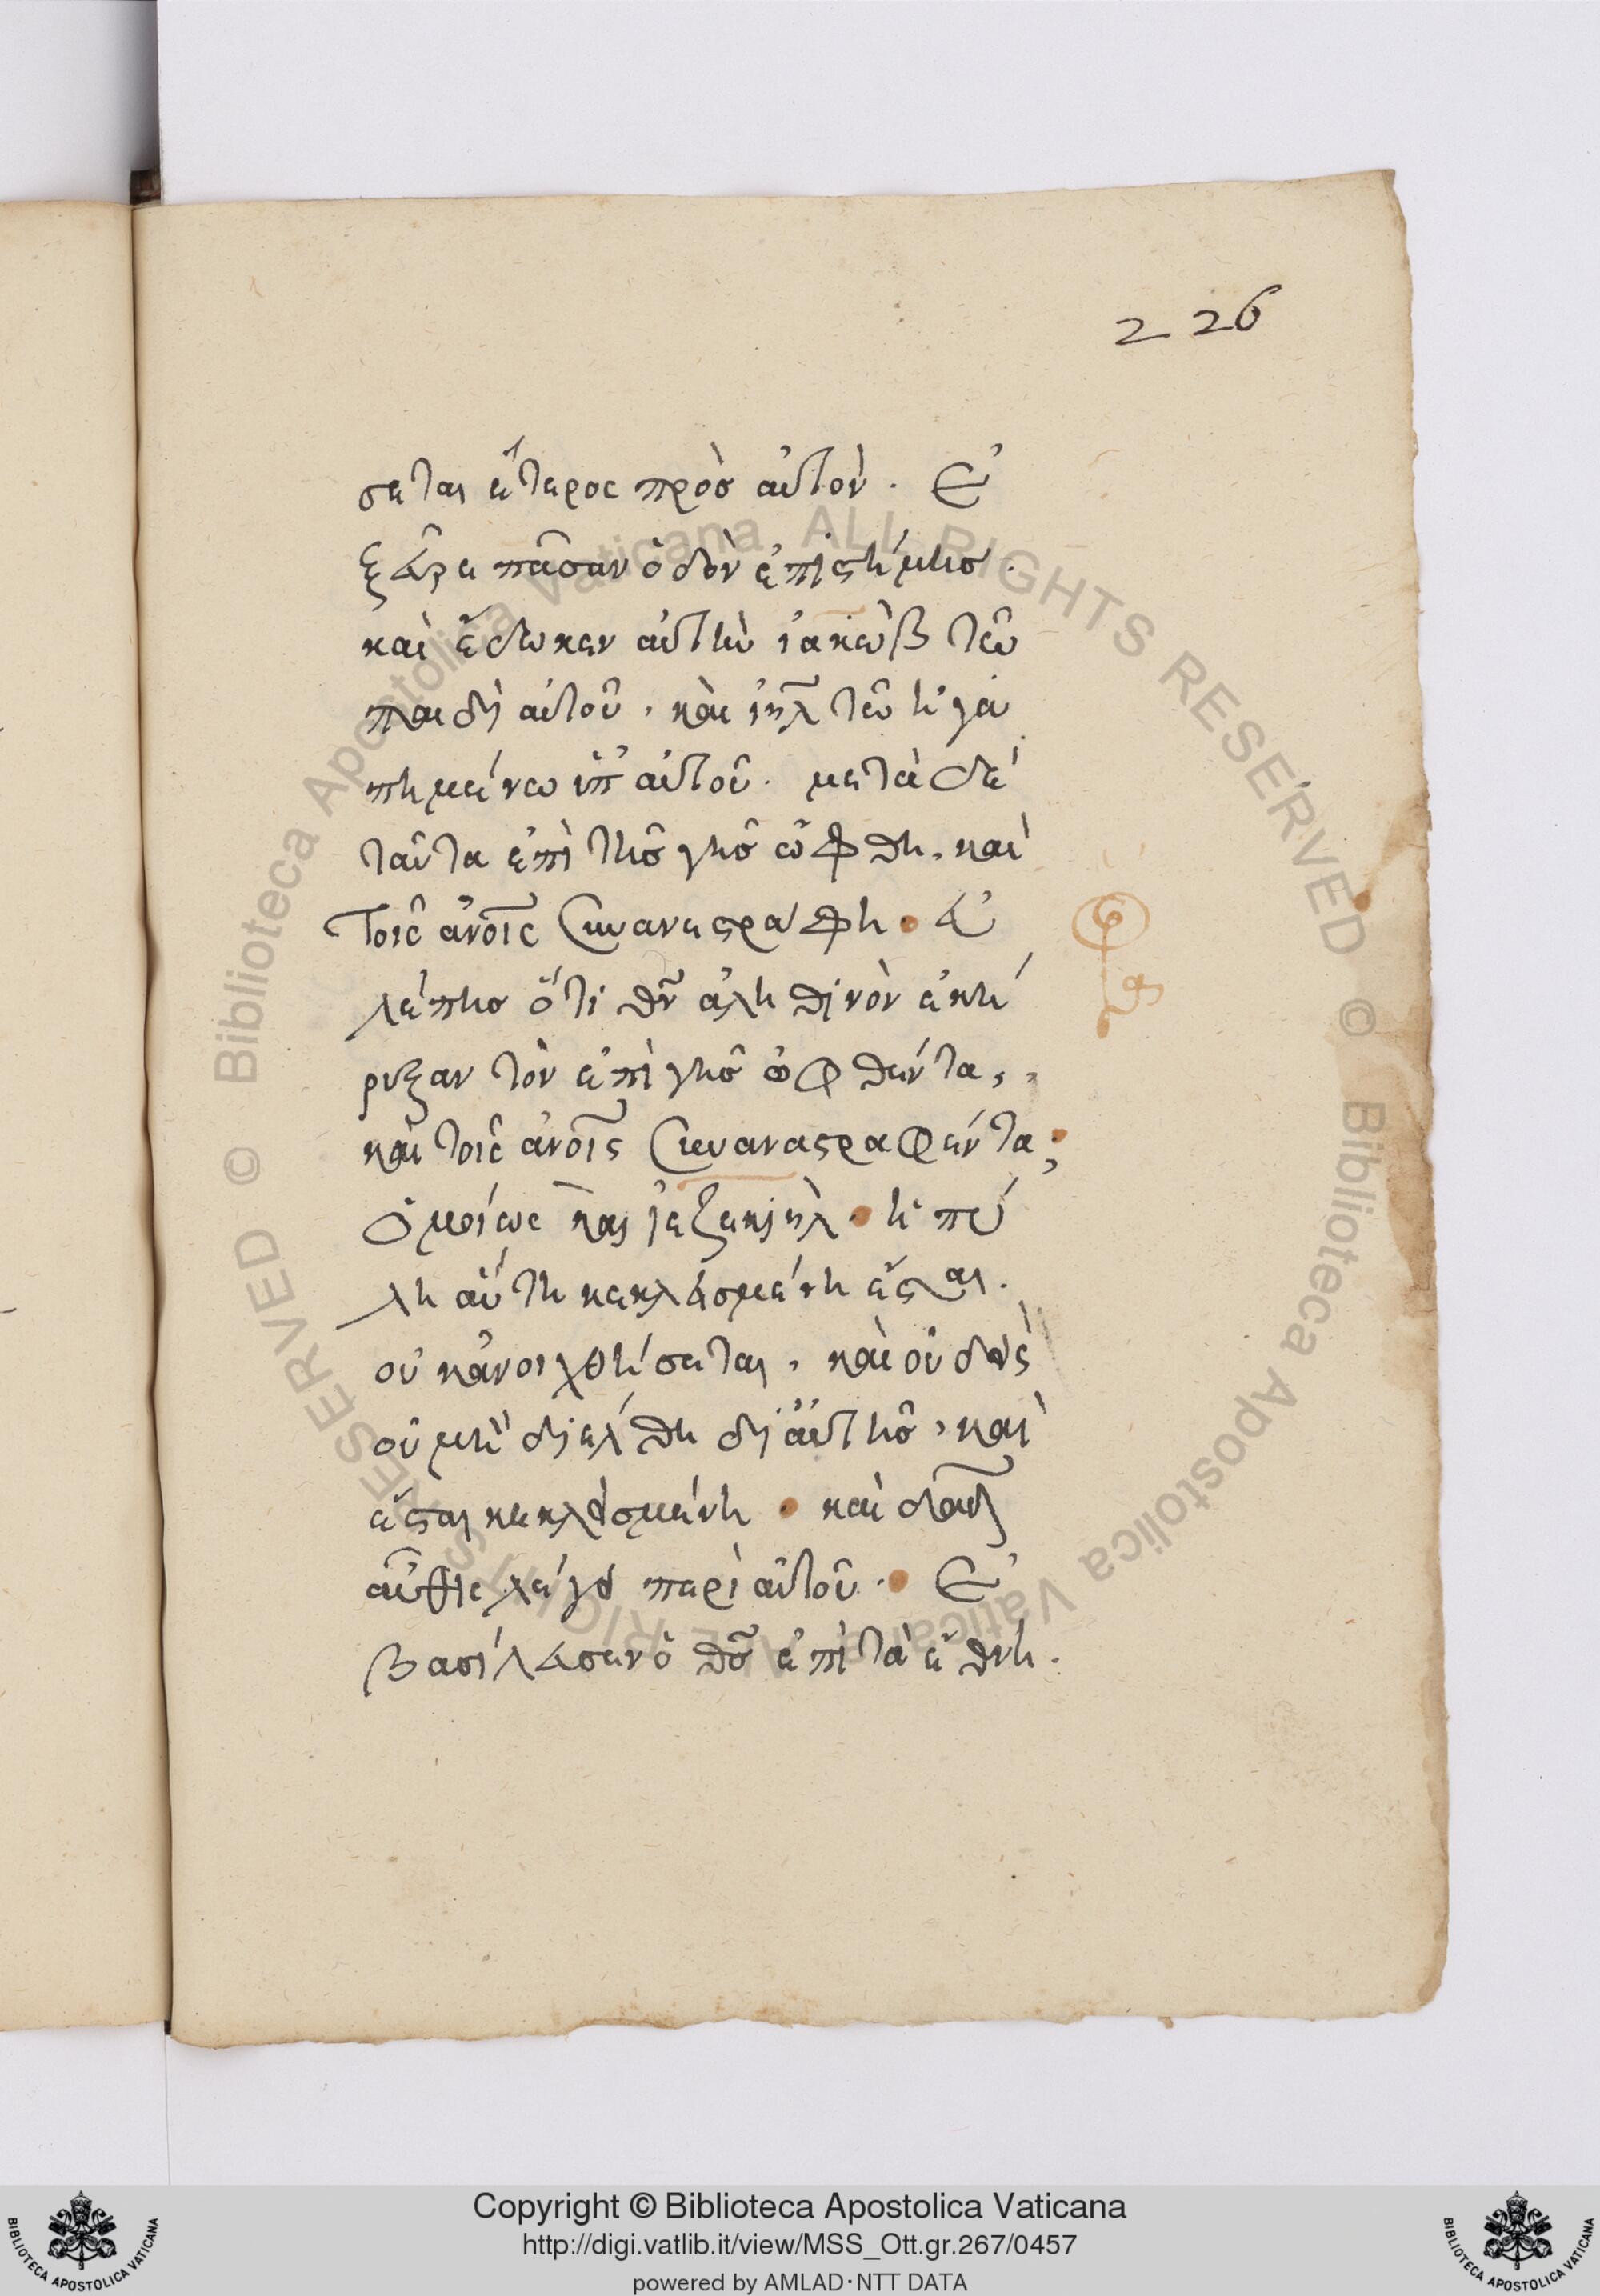 226
σεται ἕτερος πρὸσ αὐτὸν. Ἐ
ξεῦρε πᾶσαν ὁδὸν ἐπιστήμησ.
καὶ ἔδωκεν αὐτὴν ἰακὼβ τῶ
παιδὶ αὐτοῦ, καὶ ιηλ τῶ ἠγα
πημένω ὑπ' αὐτοῦ. μετὰ δὲ
ταῦτα ἐπὶ τῆσ γῆσ ὤφθη, καὶ
τοῖς ανοις συνανεστράφη. βλέπεισ
ὅτι θν ἀληθινὸν ἐκή
ρυξαν τὸν ἐπὶ γῆσ ὀφθέντα,
καὶ τοῖς ανοις συναναστραφέντα;
Ὁμοίως καὶ ἰεζεκιὴλ. ἡ πύ
λη αὕτη κεκλεισμένη ἔσται.
οὐκ ἀνοιχθήσεται, καὶ οὐδεὶς
οὐ μὴ διέλθη δι' αὐτῆσ, καὶ
ἔσται κεκλεισμένη. καὶ δαδ
αὖθις λέγει περὶ αὐτοῦ. Ἐ
βασίλευσεν ὁ θσ ἐπὶ τὰ ἔθνη.
Copyright © Biblioteca Apostolica Vaticana
http://digi.vatlib.it/view/MSS_Ott.gr.267/0457
powered by AMLAD·NTT DATA
BIBLIOTECA APOSTOLICA VATICANA
BIBLIOTECA APOSTOLICA VATICANA
© Biblioteca Apostolica Vaticana ALL RIGHTS RESERVED
© Biblioteca Apostolica Vaticana ALL RIGHTS RESERVED